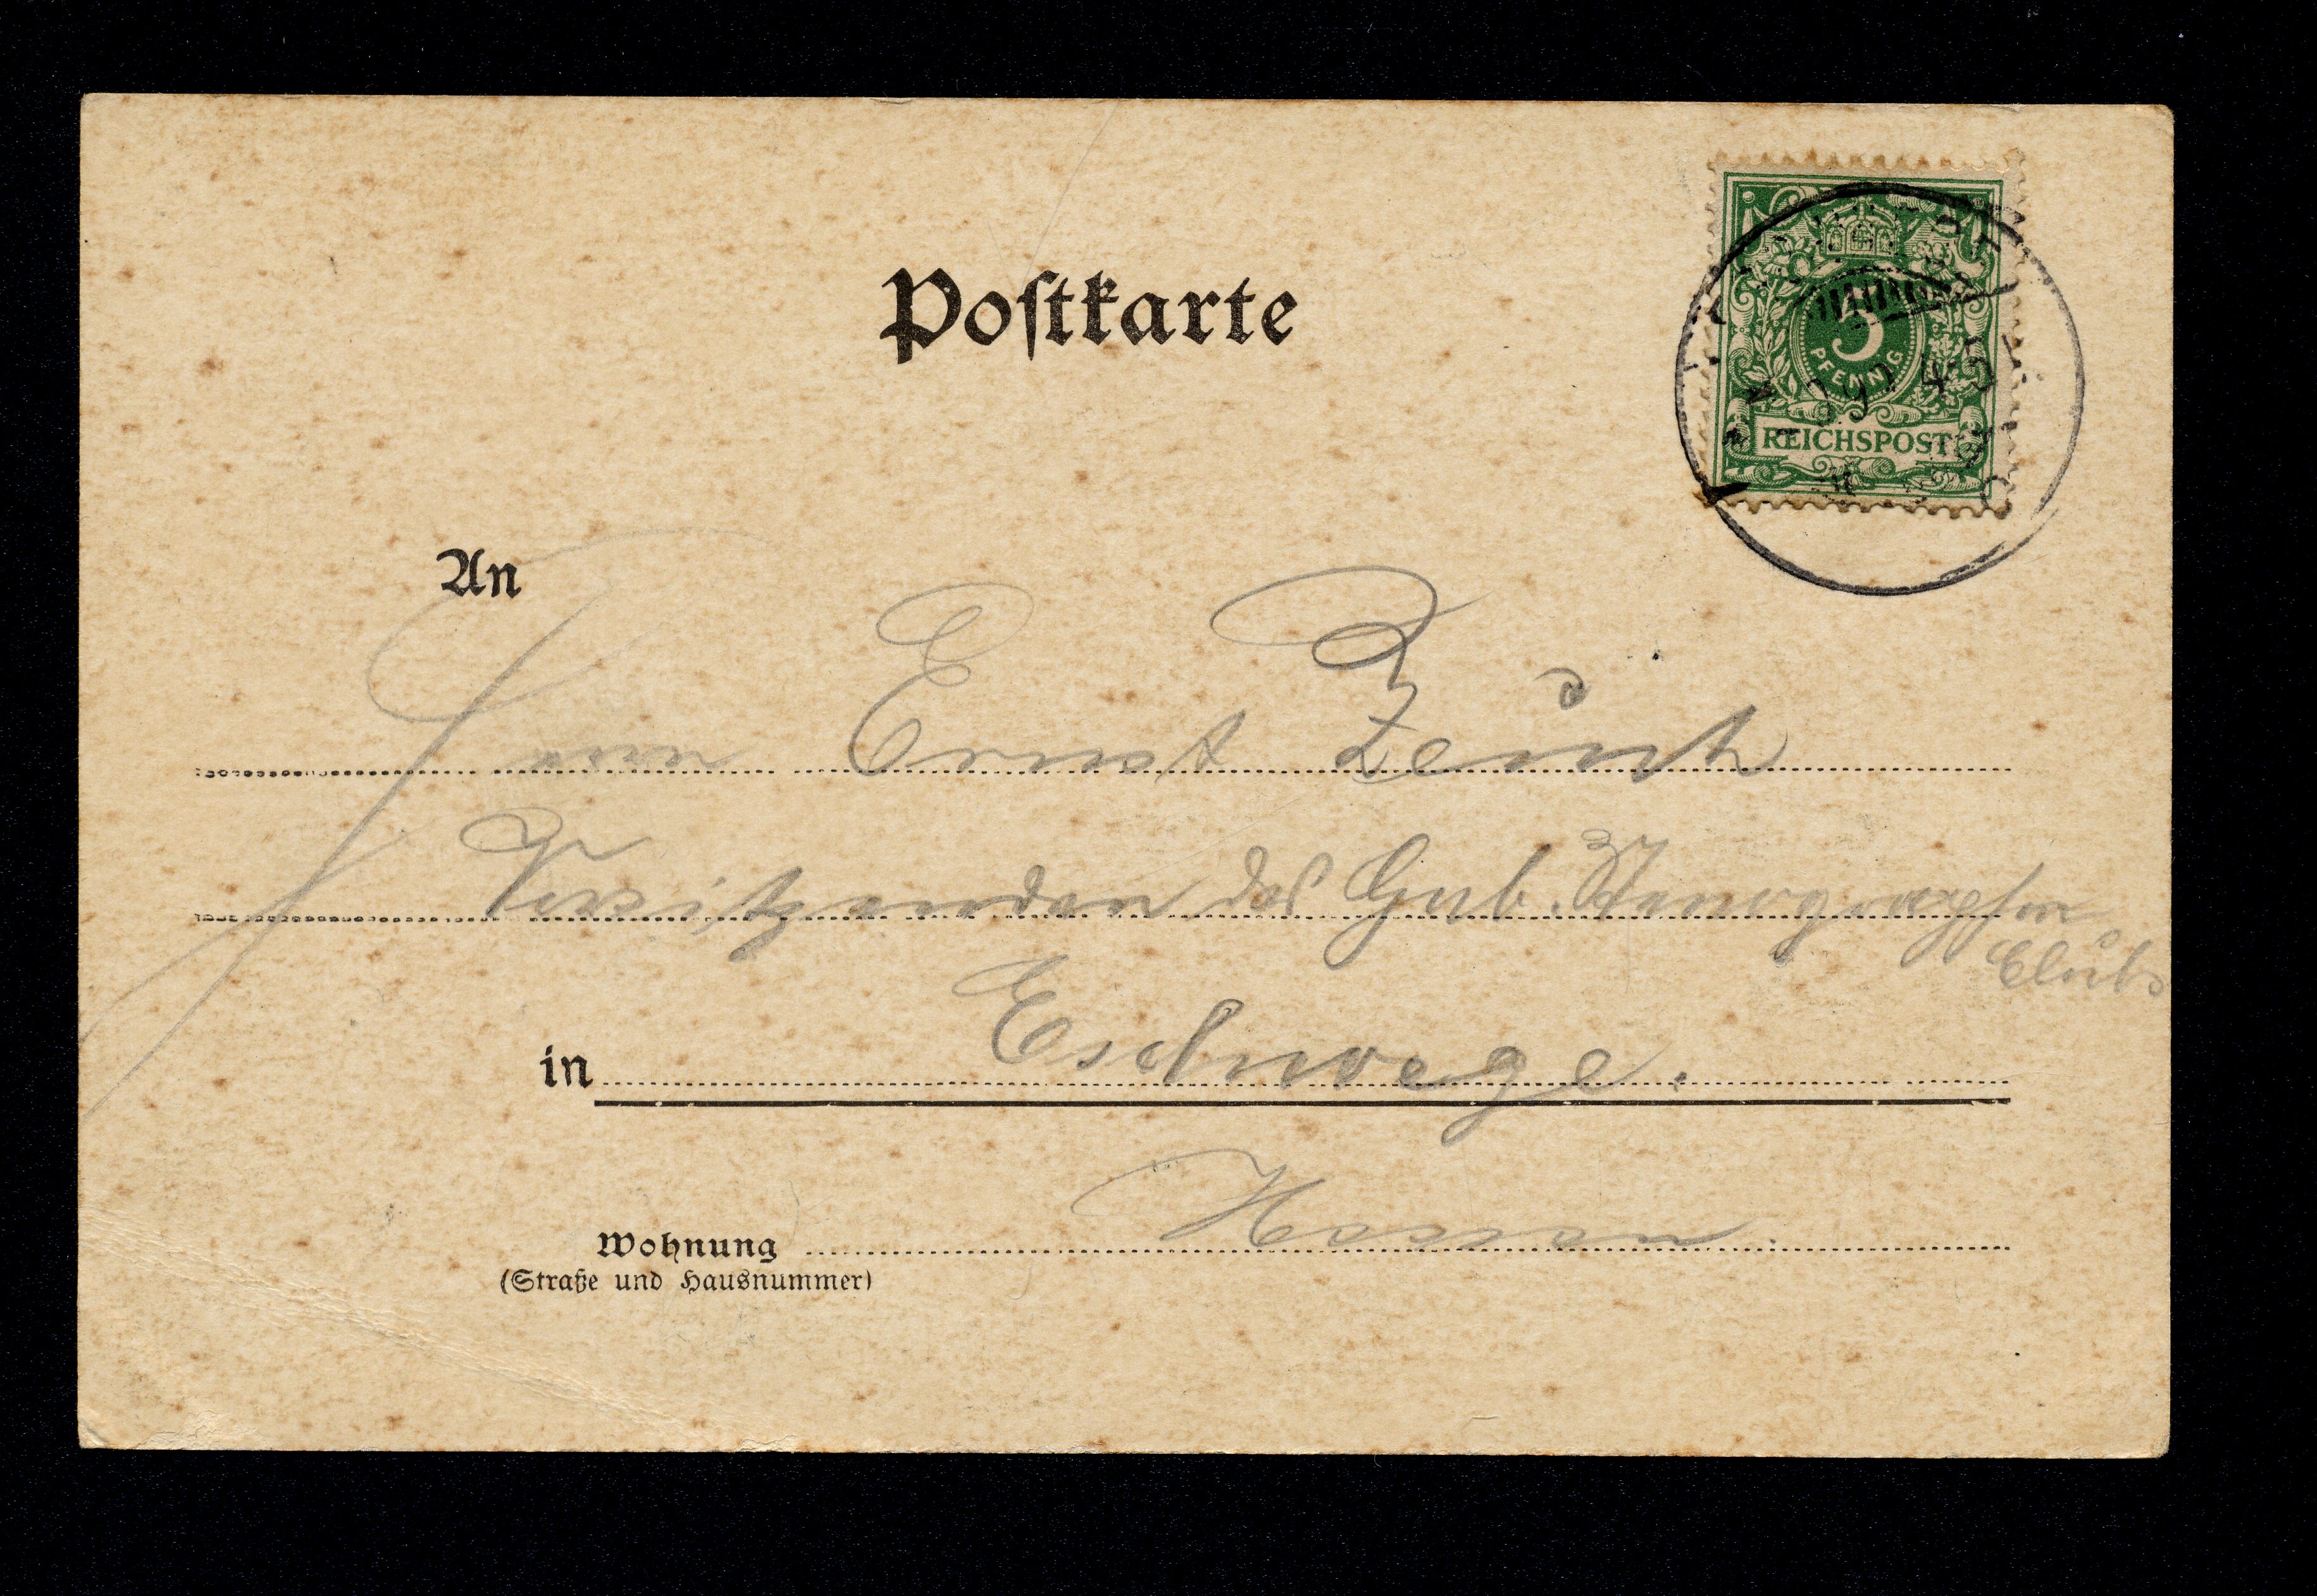 Postkarte
5
PFENNIG
REICHSPOST
An
Herrn Ernst
Vorsitzenden des Gab. Stenographen
Clubs
in Eschwege.
Hessen
Wohnung
(Straße und Hausnummer)